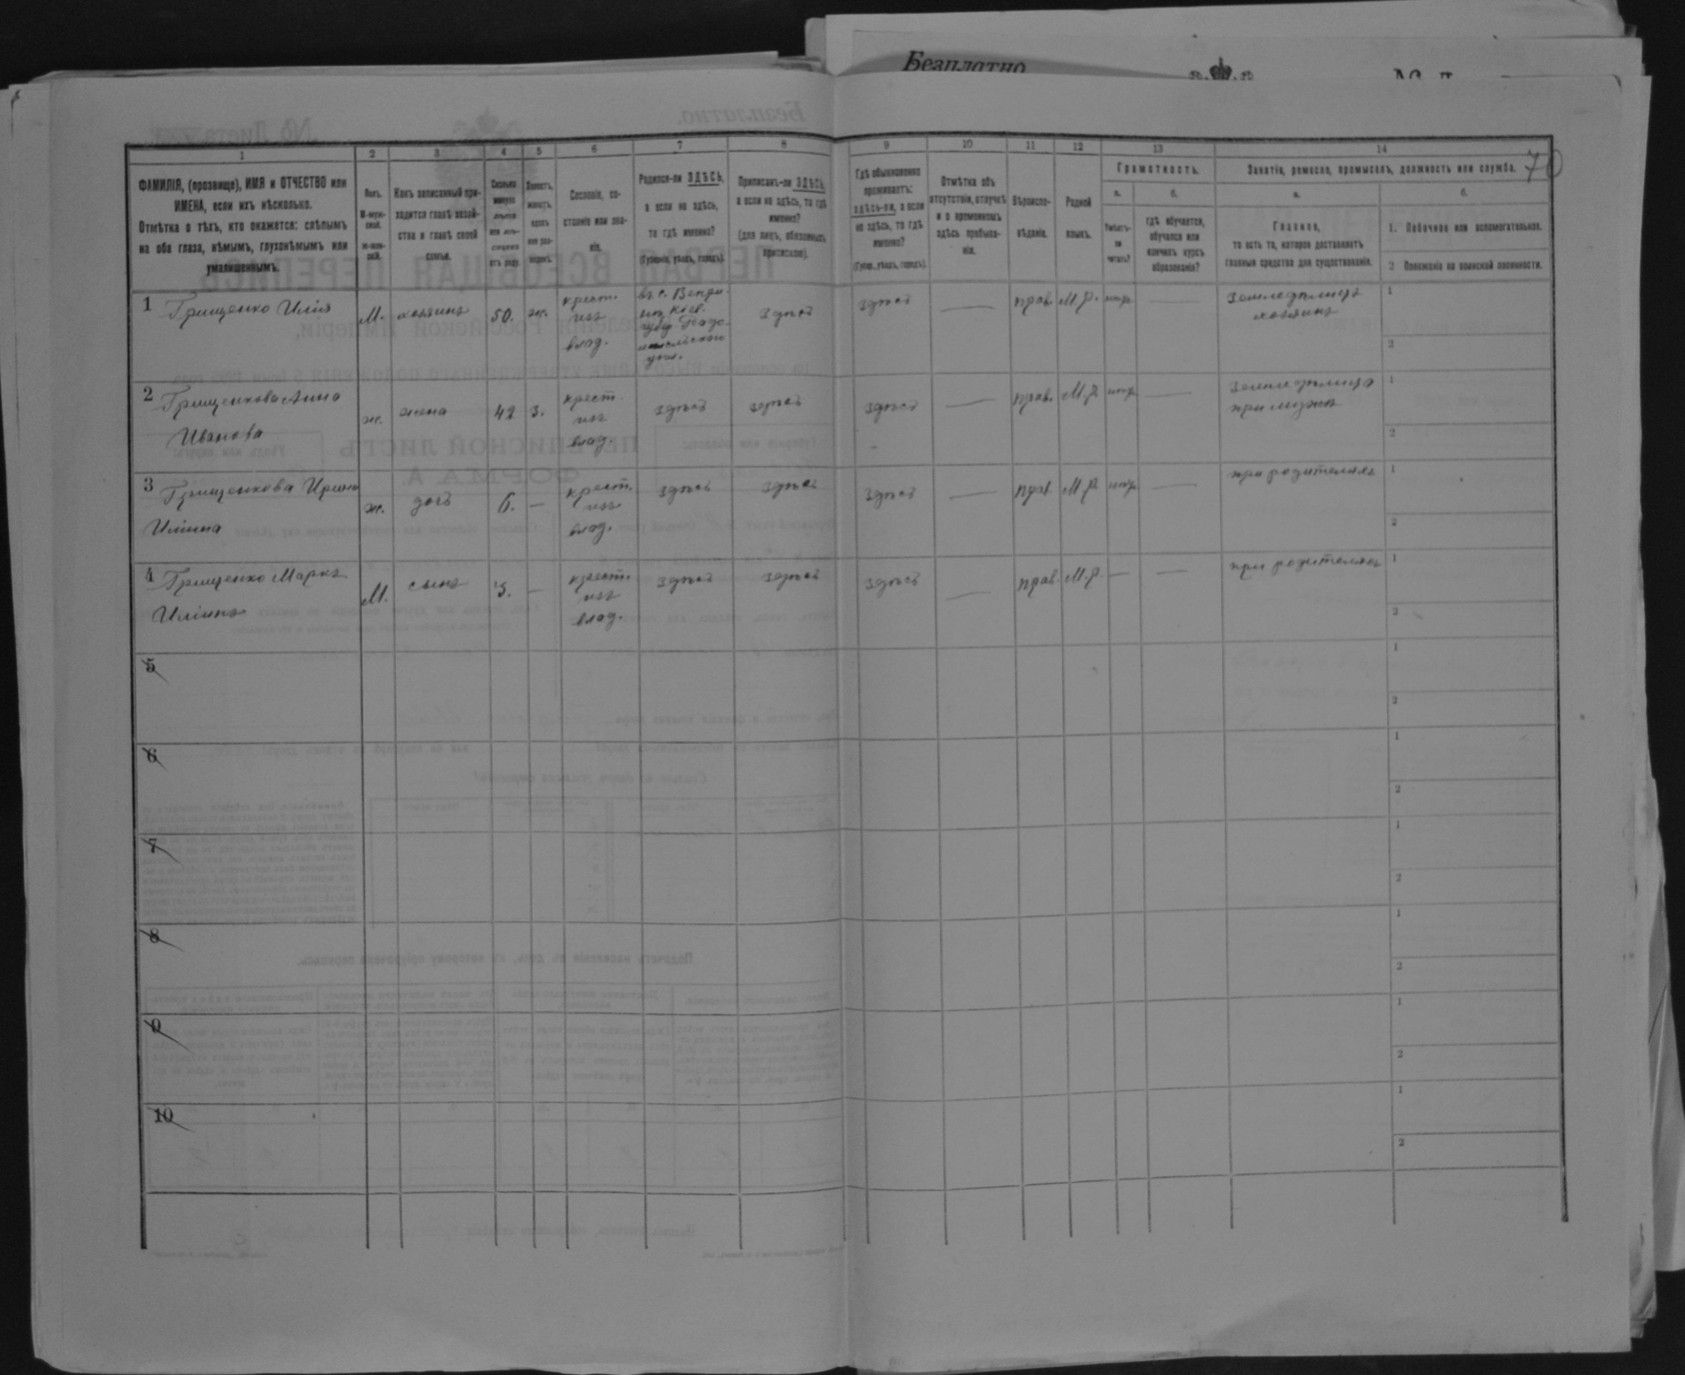 Безплатно
70
1 2 3 4 5 6 7 8 9 10 11 12 13 14
ФАМИЛІЯ, (прозвище), ИМЯ и ОТЧЕСТВО или
ИМЕНА, если ихъ нѣсколько.
Отмѣтка о тѣхъ, кто окажется: слѣпымъ
на оба глаза, нѣмымъ, глухонѣмымъ или
умалишеннымъ.
Полъ.
М-муж-
ской.
Ж-жен-
скій.
Какъ записанный при-
ходится главѣ хозяй-
ства и главѣ своей
семьи.
Сколько
минуло
лѣтъ
или мѣ-
сяцевъ
отъ роду.
Холостъ,
женатъ,
вдовъ
или раз-
веденъ.
Сословіе, со-
стояніе или зва-
ніе.
Родился-ли ЗДѢСЬ,
а если не здѣсь,
то гдѣ именно?
(Губернія, уѣздъ, городъ).
Приписанъ-ли ЗДѢСЬ,
а если не здѣсь, то гдѣ
именно?
(для лицъ, обязанныхъ
припискою).
Гдѣ обыкновенно
проживаетъ:
здѣсь-ли, а если
не здѣсь, то гдѣ
именно?
(Губер., уѣздъ, городъ).
Отмѣтка объ
отсутствіи, отлучкѣ
и о временномъ
здѣсь пребыва-
ніи.
Вѣроиспо-
вѣданіе.
Родной
языкъ.
Грамотность.
а.
Умѣетъ-
ли
читать?
б.
гдѣ обучается,
обучался или
кончилъ курсъ
образованія?
Занятіе, ремесло, промыселъ, должность или служба.
а.
Главное,
то есть то, которое доставляетъ
главныя средства для существованія.
б.
1. Побочное или вспомогательное.
2 Положеніе по воинской повинности.
1 Грищенко Илія
М. хозяинъ 50. ж.
крест.
изъ
влад.
здѣсь здѣсь — прав. М.р. —
земледѣлецъ
хозяинъ
1
2
2 Грищенкова Анна
Иванова
ж. жена 42 з.
крест.
изъ
влад.
здѣсь здѣсь здѣсь — прав. М.р. —
при мужѣ
1
2
3 Грищенкова
Иліина
ж. дочь 6. —
крест.
изъ
влад.
здѣсь здѣсь здѣсь — прав. М.р. —
при родителяхъ
1
2
4 Грищенко Маркъ
Иліинъ
М. сынъ 3. —
крест.
изъ
влад.
здѣсь здѣсь здѣсь — прав. М.р. — —
при родителяхъ
1
2
5
1
2
6
1
2
7
1
2
8
1
2
9
1
2
10
1
2